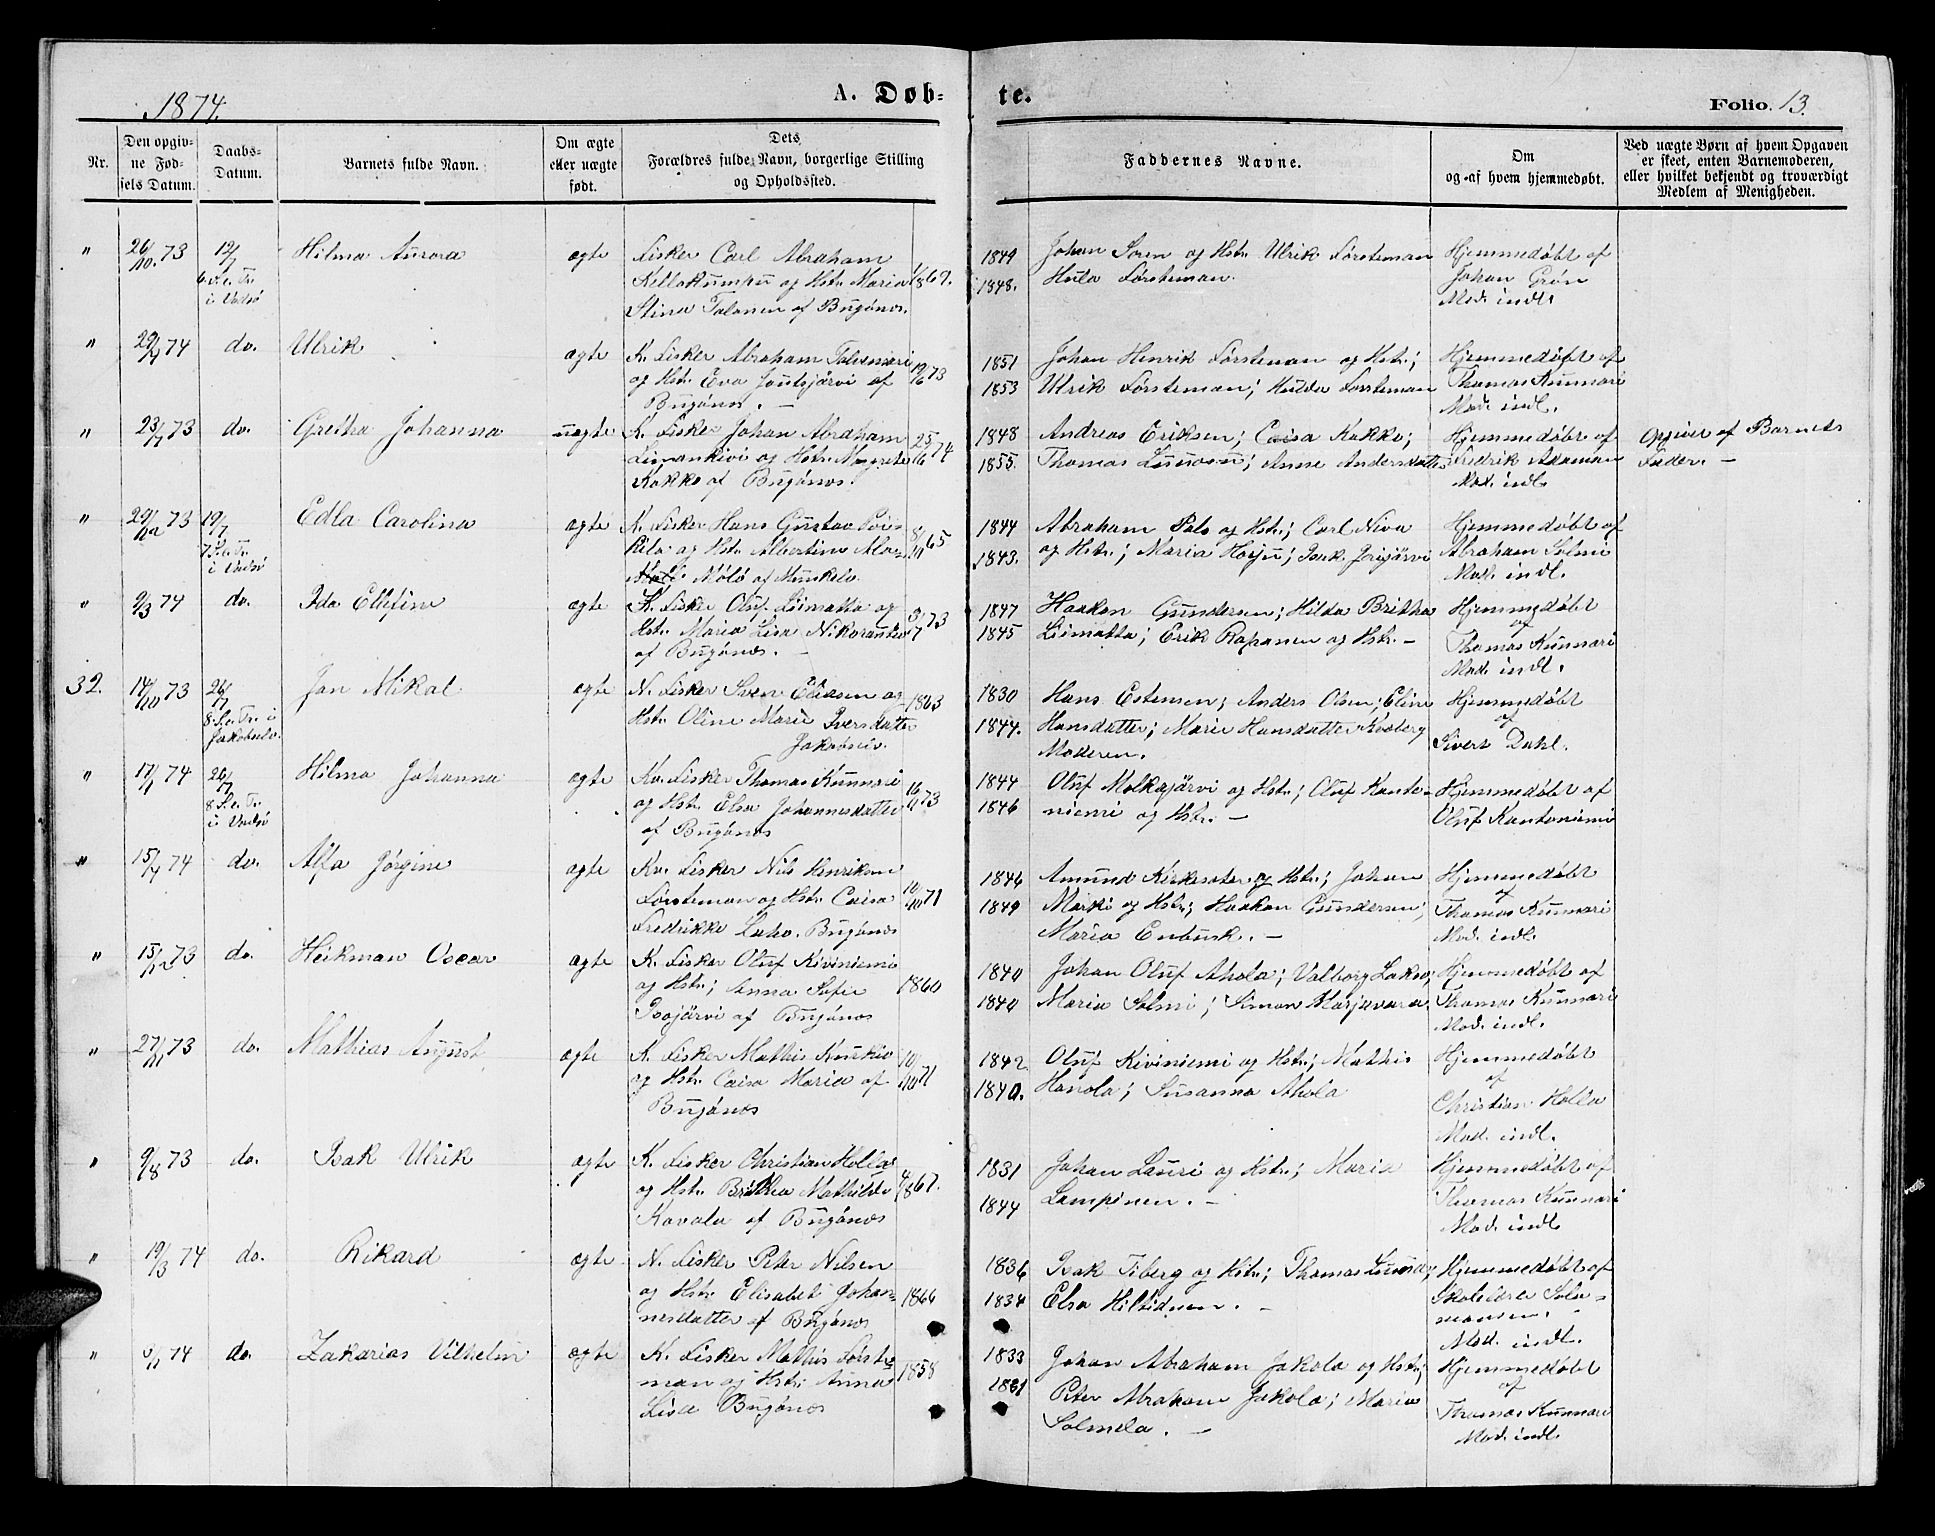 1874.
A. Døb-
te.
Folio. 13.
Nr.
Den opgiv-
ne Fød-
sels Datum.
Daabs-
Datum.
Barnets fulde Navn.
Om ægte
eller uægte
født.
Dets
Forældres fulde Navn, borgerlige Stilling
og Opholdssted.
Faddernes Navne.
Om
og af hvem hjemmedøbt.
Ved uægte Børn af hvem Opgaven
er skeet, enten Barnemoderen,
eller hvilket bekjendt og troværdigt
Medlem af Menigheden.
" 26/10.73 12/7 Hilma Aurora ægte Fisker Carl Abraham
6 S. e. Tr. Kellokumpu og Hstr. Maria 1867.
i Vadsö Stina Talonen af Bugönæs.
1849 Johan Soren og Hstr. Ulrik Försteman
1848. Hulda Försteman.
Hjemmedøbt af
Johan Grön
Mod. indl.
" 74 do. Ulrik ægte K. Fisker Abraham
og Hstr. Eva af 73
Bugönæs. —
1851 Johan Henrik Försteman og Hstr.;
1853 Ulrik Försteman; Hulda Försteman
Hjemmedøbt af
Thomas Kunnari
Mod. indl.
" 23/7 73 do. Gretha Johanna uægte K. Fisker Johan Abraham 25
Limankivi og Hstr. Margrete 74
Kokko af Bugönæs.
1848 Andreas Eriksen; Caisa Kokko;
1855. Thomas; Anne Andersdatter
Hjemmedøbt af
Fredrik Adaman
Mod. indl.
Opgivet af Barnets
Fader. —
" 29/12 73 19/7 Edla Carolina ægte K. Fisker Hans Gustav
7 S. e. Tr. og Hstr. Albertine 65
i Vadsö Nölö af Munkelv.
1844 Abraham Palo og Hstr.; Carl Niva
1843. og Hstr.; Maria; Isak Jerijärvi
Hjemmedøbt af
Abraham Solmi
Mod. indl.
" 9/3 74 do. Ida Ellefine ægte K. Fisker Oluf Liimatta og 3/7 73
Hstr. Maria Lisa
af Bugönæs. —
1847 Haakon Gundersen; Hilda Britha
1845 Liimatta; Erik Rapanen og Hstr. —
Hjemmedøbt
af
Thomas Kunnari
Mod. indl.
32. 14/10 73 26/7 Jan Mikal ægte N. Fisker Sven Eliasen og 1863
8 S. e. Tr. i Hstr. Oline Marie Iversdatter
Jakobselv. Jakobselv.
1830 Hans Estensen; Anders Olsen; Eline
1844. Hansdatter; Marie Hansdatter Kvæberg
Moderen.
Hjemmedøbt
af
Sivert Dahl.
" 17/1 74 26/7 Hilma Johanna ægte Kv. Fisker Thomas Kunnari 16
8 S. e. Tr. og Hstr. Elsa Johannesdatter 73
i Vadsö af Bugönæs
1844 Oluf Molkojärvi og Hstr.; Oluf Kanto-
1846 niemi og Hstr. —
Hjemmedøbt af
Oluf Kantoniemi
" 15/4 74 do. Alfa Jörgine ægte Kv. Fisker Nils Henriksen
Försteman og Hstr. Caisa 10/10 71
Fredrikke Laho. Bugönæs
1846 Amund Kirkesæter og Hstr.; Johan
1849 Marki og Hstr.; Haakon Gundersen;
Maria Enbusk. —
Hjemmedøbt
af
Thomas Kunnari
Mod. indl.
" 15/12 73 do. Heikman Oscar ægte K. Fisker Oluf Kiviniemi
og Hstr.; Anna Sofie 1860
Isojärvi af Bugönæs
1840 Johan Oluf Ahola; Valborg Lakso;
1840 Maria Solmi; Simon Marjavara
Hjemmedøbt af
Thomas Kunnari
Mod. indl.
" 27/11 73 do. Mathias August ægte K. Fisker Mathis 10/10
og Hstr. Caisa Maria af 71
Bugönæs
1842. Oluf Kiviniemi og Hstr.; Mathis
1840. Hanola; Susanna Ahola
Hjemmedøbt
af
Christian Holla
Mod. indl.
" 9/8 73 do. Isak Ulrik ægte K. Fisker Christian Holla
og Hstr. Britha Mathilde 1867.
Kavala af Bugönæs
1831 Johan Lauri og Hstr.; Maria
1844 Lampinen. —
Hjemmedøbt af
Thomas Kunnari
Mod. indl.
" 19/3 74 do. Rikard ægte N. Fisker Peter Nilsen
og Hstr. Elisabet Johan- 1866
nesdatter af Bugönæs
1836 Isak Tiberg og Hstr.; Thomas;
1834 Elsa. —
Hjemmedøbt af
Skolelærer Salo-
monsen.
Mod. indl.
" 74 do. Zakarias Vilhelm ægte K. Fisker Mathis Förste- 1858
man og Hstr. Anna
Lisa Bugönæs
1833 Johan Abraham Jakola og Hstr.;
1831 Peter Abraham Jakola; Maria
Solmela. —
Hjemmedøbt
af
Thomas Kunnari
Mod. indl.